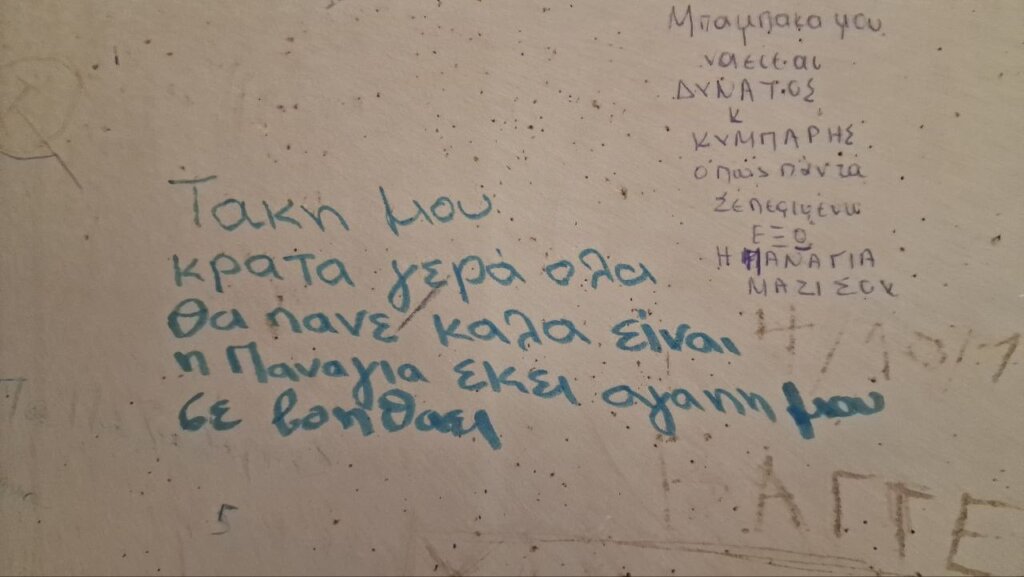 Μπαμπακα μου
να εισαι
ΔΥΝΑΤΟΣ
κ
ΚΥΜΠΑΡΗΣ
οπως πάντα
Σε περιμενω
ΕΞΟ
Η ΠΑΝΑΓΙΑ
ΜΑΖΙ ΣΟΥ
Τακη μου
κρατα γερά ολα
θα πανε καλα είναι
η Παναγια εκει αγαπη μου
σε βοηθαει
5